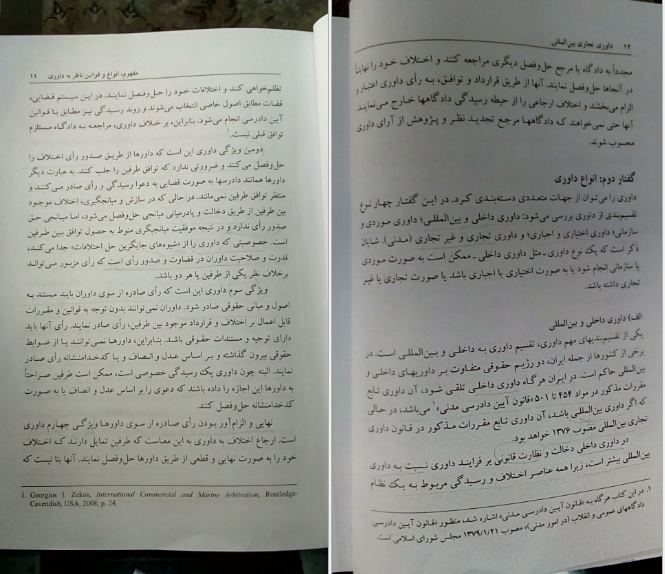 مفهوم، انواع و قوانین ناظر به داوری ۱۱
تظلم‌خواهی کند و اختلافات خود را حل‌وفصل نمایند. در این سیستم قضایی،
قضات مطابق اصول خاصی انتخاب می‌شوند و روند رسیدگی نیز مطابق با قوانین
آیین دادرسی انجام می‌شود. بنابراین، بر خلاف داوری، مراجعه به دادگاه مستلزم
توافق قبلی نیست.۱
دومین ویژگی داوری این است که داورها از طریق صدور رأی اختلاف را
حل‌وفصل می‌کنند و ضرورتی ندارد که توافق طرفین را جلب کنند. به عبارت دیگر
داورها همانند دادرسها به صورت قضایی به دعوا رسیدگی و رأی صادر می‌کنند و
منتظر توافق طرفین نمی‌مانند. در حالی که در سازش و میانجیگری، اختلاف موجود
بین طرفین از طریق دخالت و پادرمیانی میانجی حل‌وفصل می‌شود، اما میانجی حق
صدور رأی ندارد و در نتیجه موفقیت میانجیگری منوط به حصول توافق بین طرفین
است. خصوصیتی که داوری را از «شیوه‌های جایگزین حل اختلافات» جدا می‌کند،
قدرت و صلاحیت داوران در قضاوت و صدور رأی است که رأی مزبور می‌تواند
برخلاف نظر یکی از طرفین یا هر دو باشد.
ویژگی سوم داوری این است که رأی صادره از سوی داوران باید مستند به
اصول و مبانی حقوقی صادر شود. داوران نمی‌توانند بدون توجه به قوانین و مقررات
قابل اعمال بر اختلاف و قرارداد موجود بین طرفین، رأی صادر نمایند. رأی آنها باید
دارای توجیه و مستندات حقوقی باشد. بنابراین، داورها نمی‌توانند پا از ضوابط
حقوقی بیرون گذاشته و بر اساس عدل و انصاف و یا کدخدامنشانه رأی صادر
نمایند. البته چون داوری یک رسیدگی خصوصی است، ممکن است طرفین صراحتاً
به داورها این اجازه را داده باشند که دعوی را بر اساس عدل و انصاف یا به صورت
کدخدامنشانه حل‌وفصل کنند.
نهایی و الزام‌آور بودن رأی صادره از سوی داورها ویژگی چهارم داوری
است. ارجاع اختلاف به داوری به این معناست که طرفین تمایل دارند که اختلاف
خود را به صورت نهایی و قطعی از طریق داورها حل‌وفصل نمایند. آنها بنا نیست که
1. Georgios I. Zekos, International Commercial and Marine Arbitration, Routledge-
Cavendish, USA, 2008, p. 24.
۱۲ داوری تجاری بین‌المللی
مجدداً به دادگاه یا مرجع حل‌وفصل دیگری مراجعه کنند و اختلاف خود را نهایتاً
در آنجاها حل‌وفصل نمایند. آنها از طریق قرارداد و توافق، به رأی داوری اعتبار و
الزام می‌بخشند و اختلاف ارجاعی را از حیطه رسیدگی دادگاهها خارج می‌نمایند.
آنها حتی نمی‌خواهند که دادگاهها مرجع تجدید نظر و پژوهش از آرای داوری
محسوب شوند.
گفتار دوم: انواع داوری
داوری را می‌توان از جهات متعددی دسته‌بندی کرد. در این گفتار چهار نوع
تقسیم‌بندی از داوری بررسی می‌شود: داوری داخلی و بین‌المللی؛ داوری موردی و
سازمانی؛ داوری اختیاری و اجباری؛ و داوری تجاری و غیر تجاری (مدنی). شایان
ذکر است که یک نوع داوری ـ مثل داوری داخلی ـ ممکن است به صورت موردی
یا سازمانی انجام شود یا به صورت اختیاری یا اجباری باشد یا صورت تجاری یا غیر
تجاری داشته باشد.
الف) داوری داخلی و بین‌المللی
یکی از تقسیم‌بندیهای مهم داوری، تقسیم داوری به داخلی و بین‌المللی است. در
برخی از کشورها از جمله ایران، دو رژیم حقوقی متفاوت بر داوریهای داخلی و
بین‌المللی حاکم است. در ایران هرگاه داوری داخلی تلقی شود، آن داوری تابع
مقررات مذکور در مواد ۴۵۴ تا ۵۰۱ «قانون آیین دادرسی مدنی»۱ می‌باشد، در حالی
که اگر داوری بین‌المللی باشد، آن داوری تابع مقررات مذکور در قانون داوری
تجاری بین‌المللی مصوب ۱۳۷۶ خواهد بود.
در داوری داخلی دخالت و نظارت قانونی بر فرایند داوری نسبت به داوری
بین‌المللی بیشتر است، زیرا همه عناصر اختلاف و رسیدگی مربوط به یک نظام
۱. در این کتاب هرگاه به «قانون آیین دادرسی مدنی» اشاره شد، منظور «قانون آیین دادرسی
دادگاههای عمومی و انقلاب (در امور مدنی)» مصوب ۱۳۷۹/۱/۲۱ مجلس شورای اسلامی است.